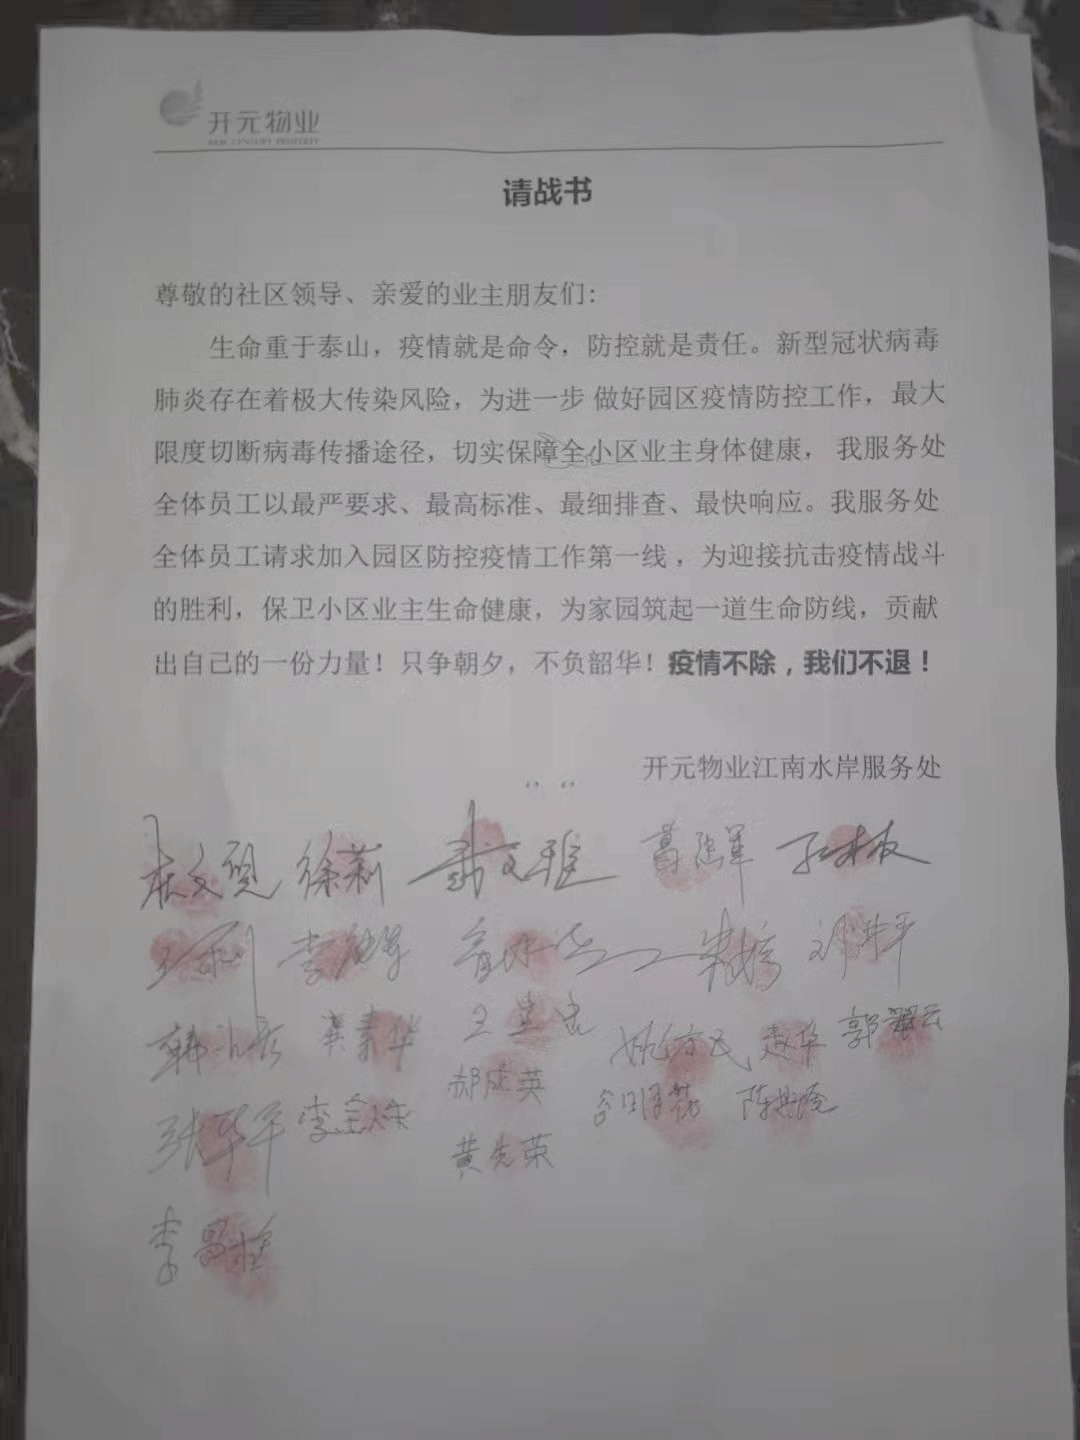 开元物业
NEW CENTURY PROPERTY
请战书
尊敬的社区领导、亲爱的业主朋友们：
生命重于泰山，疫情就是命令，防控就是责任。新型冠状病毒
肺炎存在着极大传染风险，为进一步 做好园区疫情防控工作，最大
限度切断病毒传播途径，切实保障全小区业主身体健康， 我服务处
全体员工以最严要求、最高标准、最细排查、最快响应。我服务处
全体员工请求加入园区防控疫情工作第一线 ，为迎接抗击疫情战斗
的胜利，保卫小区业主生命健康，为家园筑起一道生命防线，贡献
出自己的一份力量！只争朝夕，不负韶华！疫情不除，我们不退！
开元物业江南水岸服务处
徐莉
龚素华 赵华 郭翠云
郝成英
张华平 李金火
黄先荣